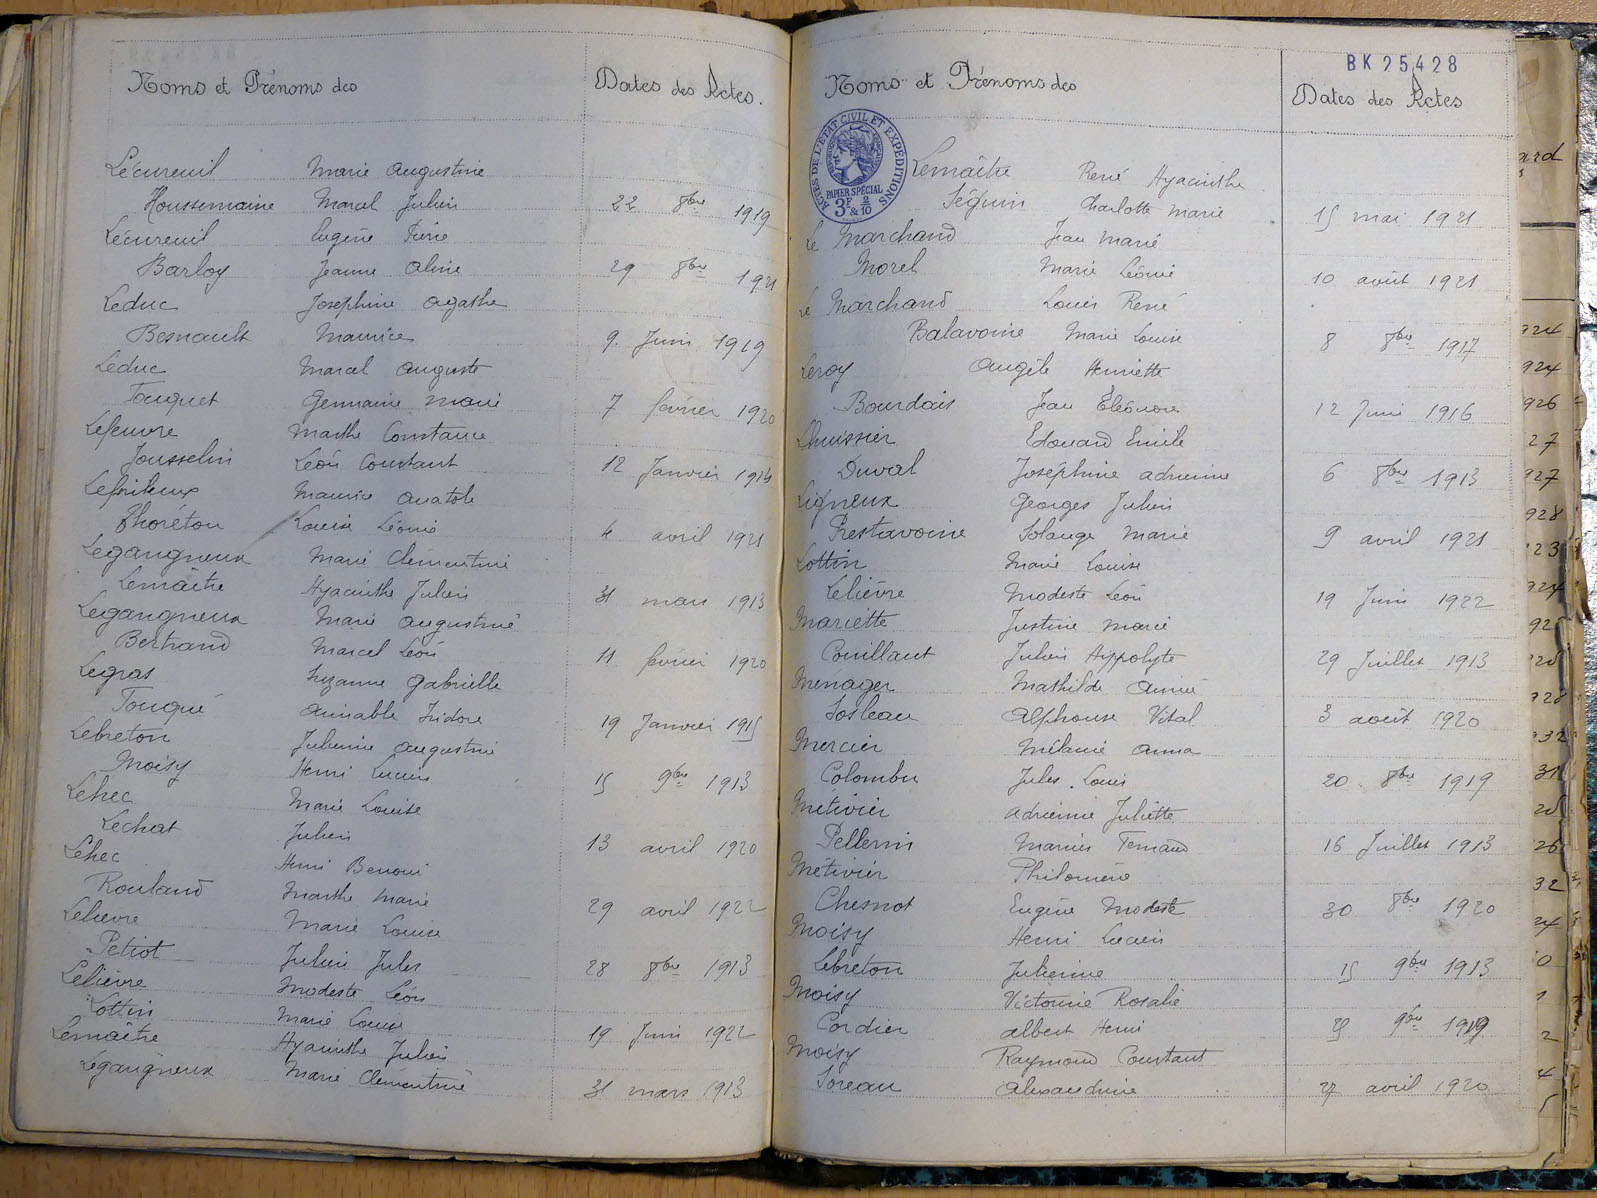 Noms et Prénoms des Dates des Actes.
Lécureuil Marie Augustine
Houssemaine Marcel Julien 22 8bre 1919
Lécureuil Eugène Pierre
Barloy Jeanne Aline 29 8bre 1921
Leduc Joséphine Agathe
Besnault Maurice 9 Juin 1919
Leduc Marcel Auguste
Touquet Germaine Marie 7 février 1920
Lefeuvre Marthe Constance
Jousselin Léon Constant 12 Janvier 1914
Maurice Anatole
Thoréton Louise Léonie 4 avril 1921
Legangneux Marie Clémentine
Lemaître Hyacinthe Julien 31 mars 1913
Legangneux Marie Augustine
Bertrand Marcel Léon 11 février 1920
Legras Suzanne Gabrielle
Touqué Aimable Isidore 19 Janvier 1915
Lebreton Julienne Augustine
Moisy Henri Lucien 15 9bre 1913
Lehec Marie Louise
Lechat Julien 13 avril 1920
Lehec Henri Benoni
Rouland Marthe Marie 29 avril 1922
Lelièvre Marie Louise
Petiot Julien Jules 28 8bre 1913
Lelièvre Modeste Léon
Lottin Marie Louise 19 Juin 1922
Lemaître Hyacinthe Julien
Legangneux Marie Clémentine 31 mars 1913
BK 25428
Noms et Prénoms des Dates des Actes
ACTES DE L'ÉTAT CIVIL ET EXPÉDITIONS
PAPIER SPÉCIAL
3F & 2/10
Lemaître René Hyacinthe
Séguin Charlotte Marie 15 mai 1921
Le Marchand Jean Marie
Morel Marie Léonie 10 août 1921
Le Marchand Louis René
Balavoine Marie Louise 8 8bre 1917
Leroy Angèle Henriette
Bourdais Jean Eléonore 12 Juin 1916
Lhuissier Edouard Emile
Duval Joséphine Adrienne 6 8bre 1913
Ligneux Georges Julien
Prestavoine Solange Marie 9 avril 1921
Lottin Marie Louise
Lelièvre Modeste Léon 19 Juin 1922
Mariette Justine Marie
Couillaut Julien Hyppolyte 29 Juillet 1913
Menager Mathilde Aimée
Losleau Alphonse Vital 3 août 1920
Mercier Mélanie Anna
Colombu Jules Louis 20 8bre 1919
Métivier Adrienne Juliette
Pellerin Marius Fernand 16 Juillet 1913
Métivier Philomène
Chesnot Eugène Modeste 30 8bre 1920
Moisy Henri Lucien
Lebreton Julienne 15 9bre 1913
Moisy Victorine Rosalie
Cordier Albert Henri 9bre 1919
Moisy Raymond Constant
Soreau Alexandrine 27 avril 1920